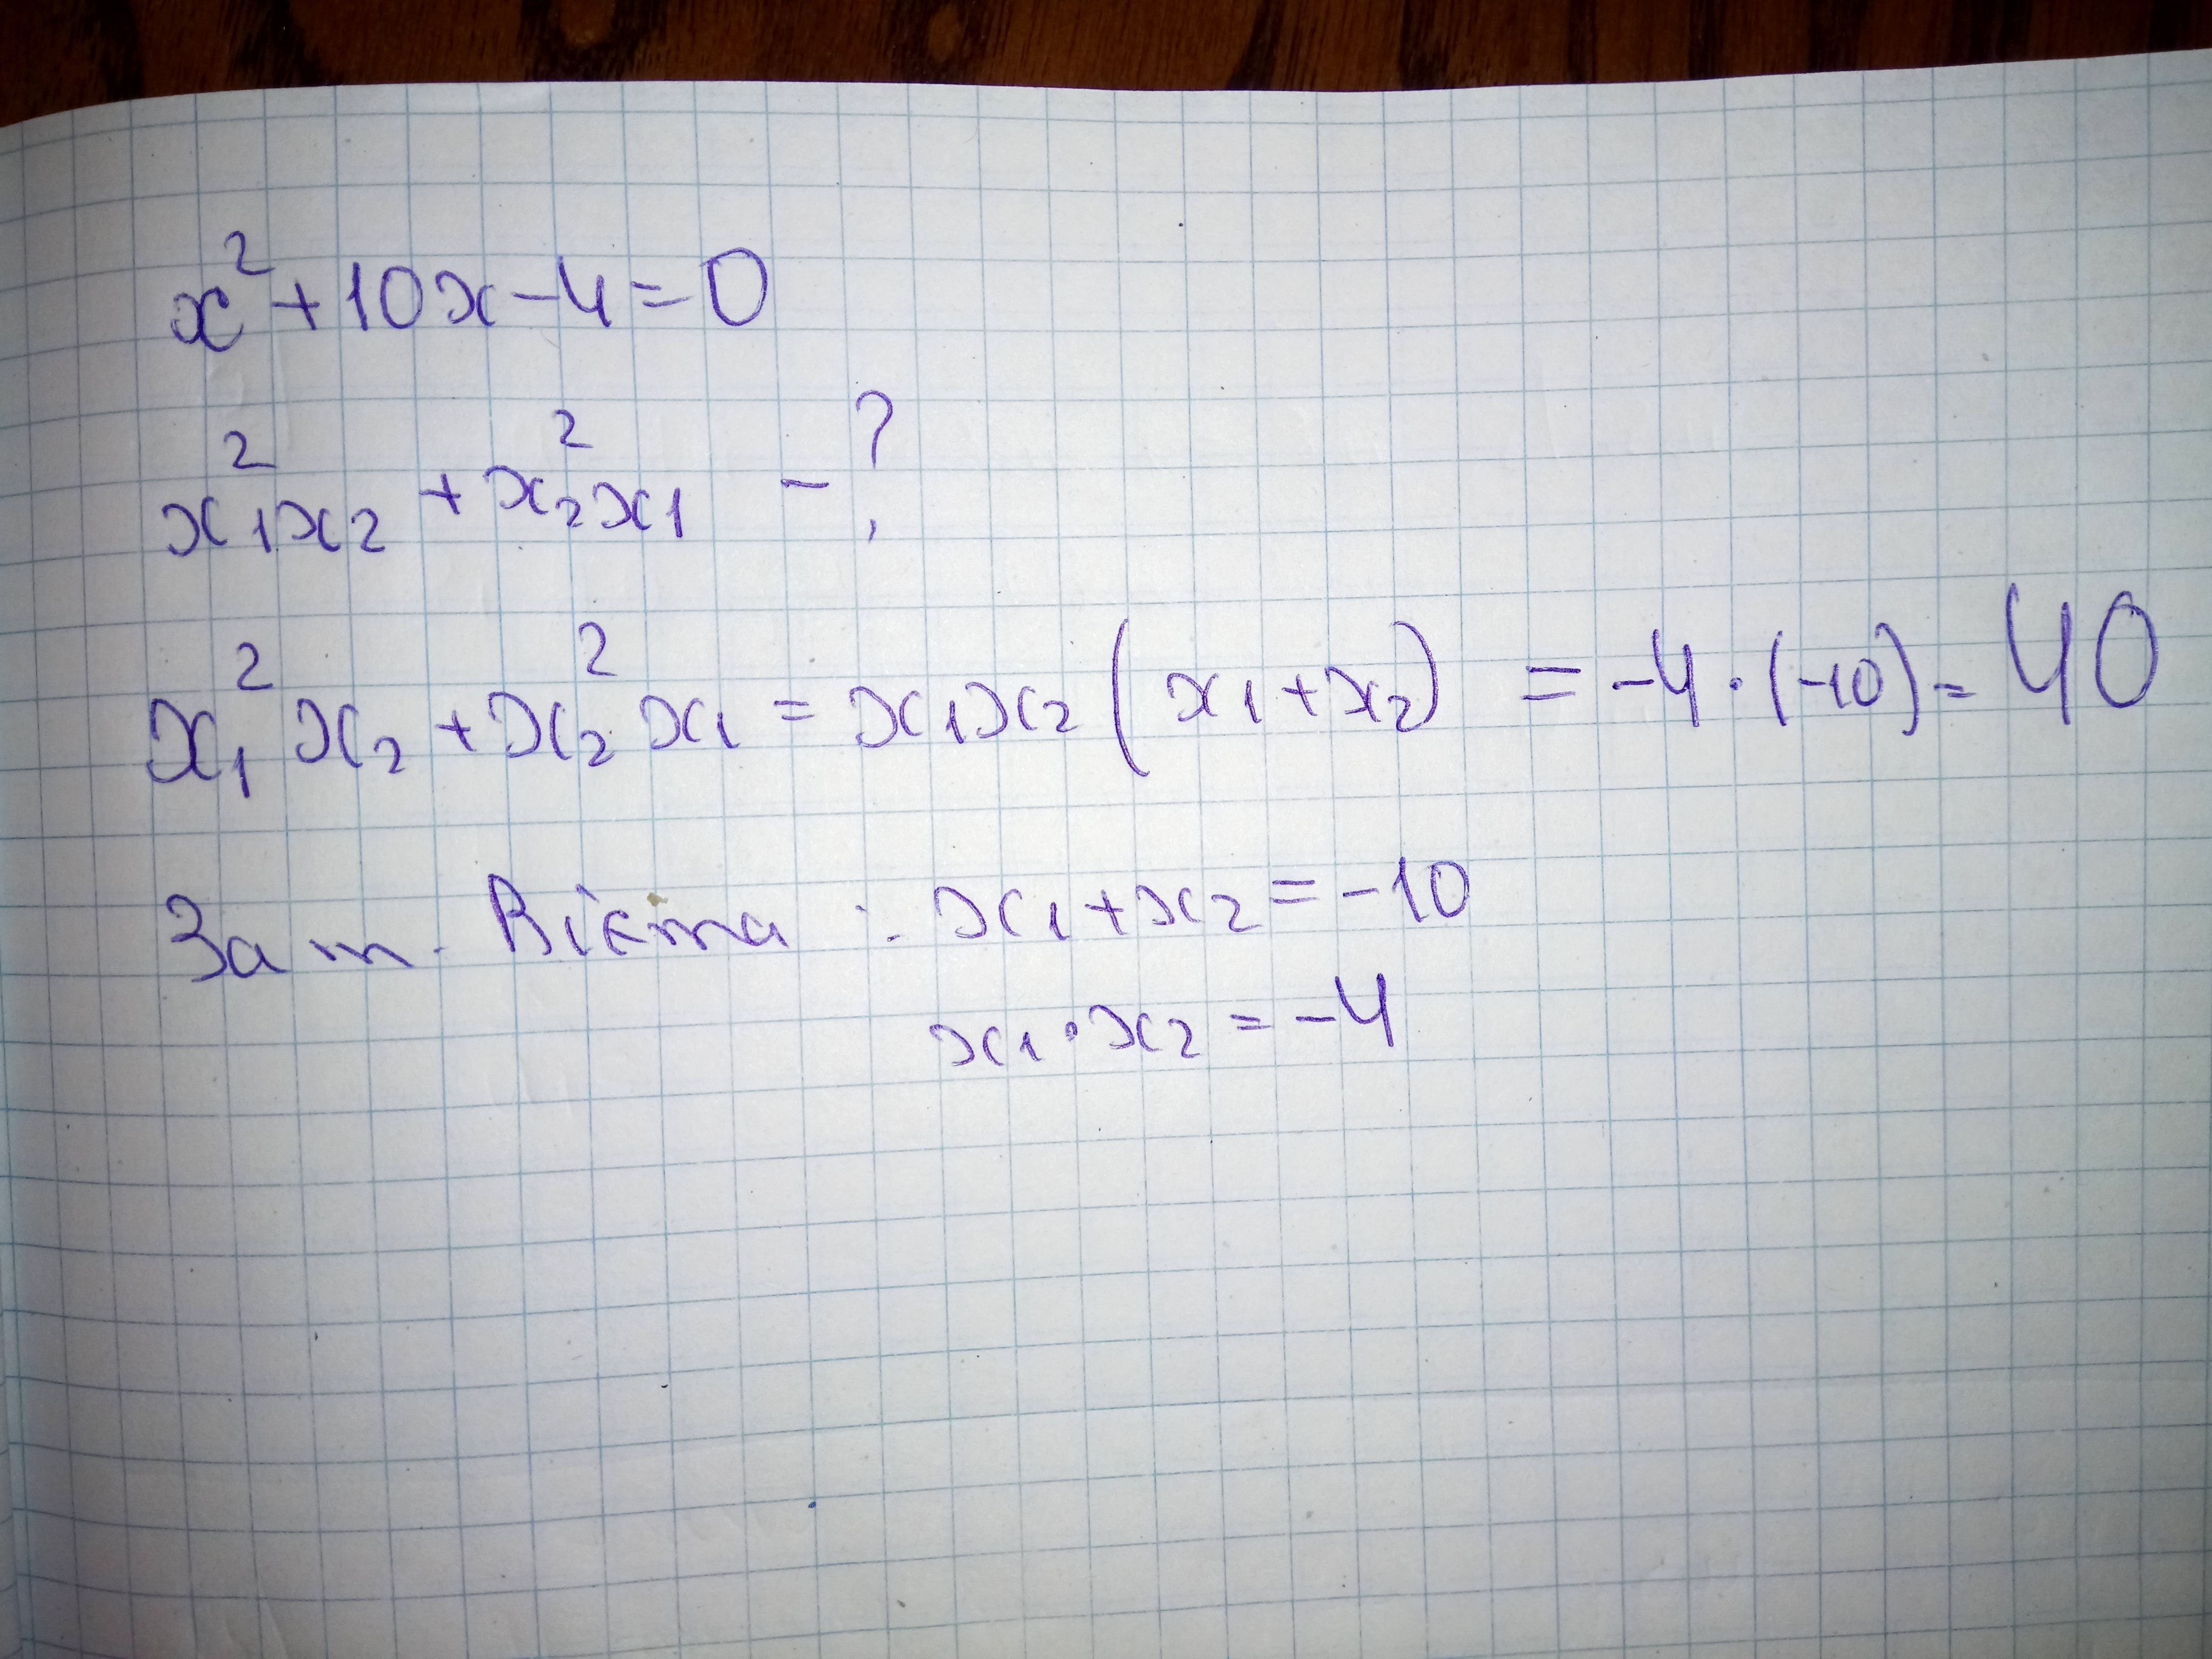 x² + 10x - 4 = 0
x₁²x₂ + x₂²x₁ - ?
x₁²x₂ + x₂²x₁ = x₁x₂(x₁ + x₂) = -4·(-10) = 40
За т. Вієта : x₁ + x₂ = -10
x₁·x₂ = -4